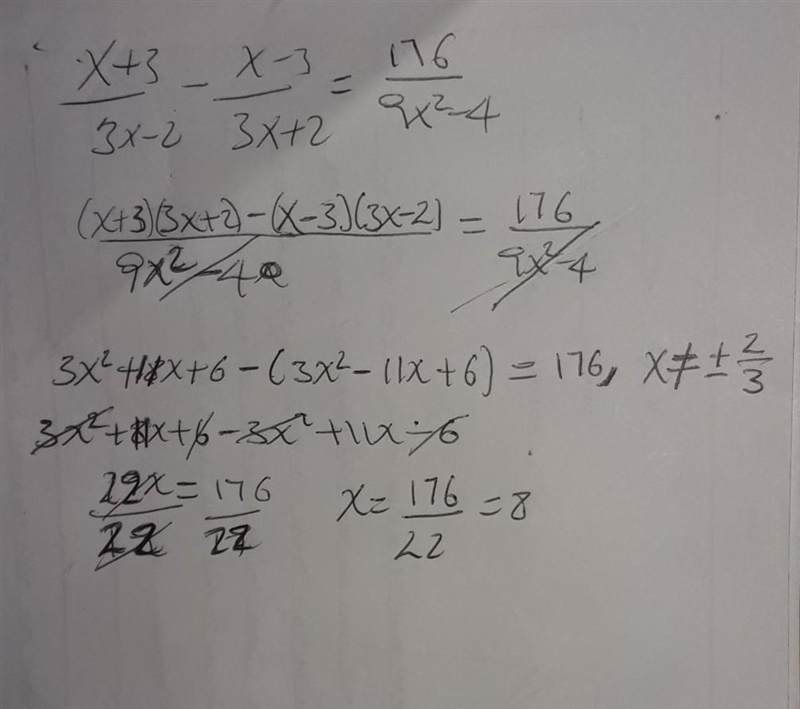 x+3/3x-2 - x-3/3x+2 = 176/9x²-4
(x+3)(3x+2)-(x-3)(3x-2)/9x²-4 = 176/9x²-4
3x²+11x+6-(3x²-11x+6)=176, x≠±2/3
3x²+11x+6-3x²+11x-6
22x/22=176/22 x=176/22=8